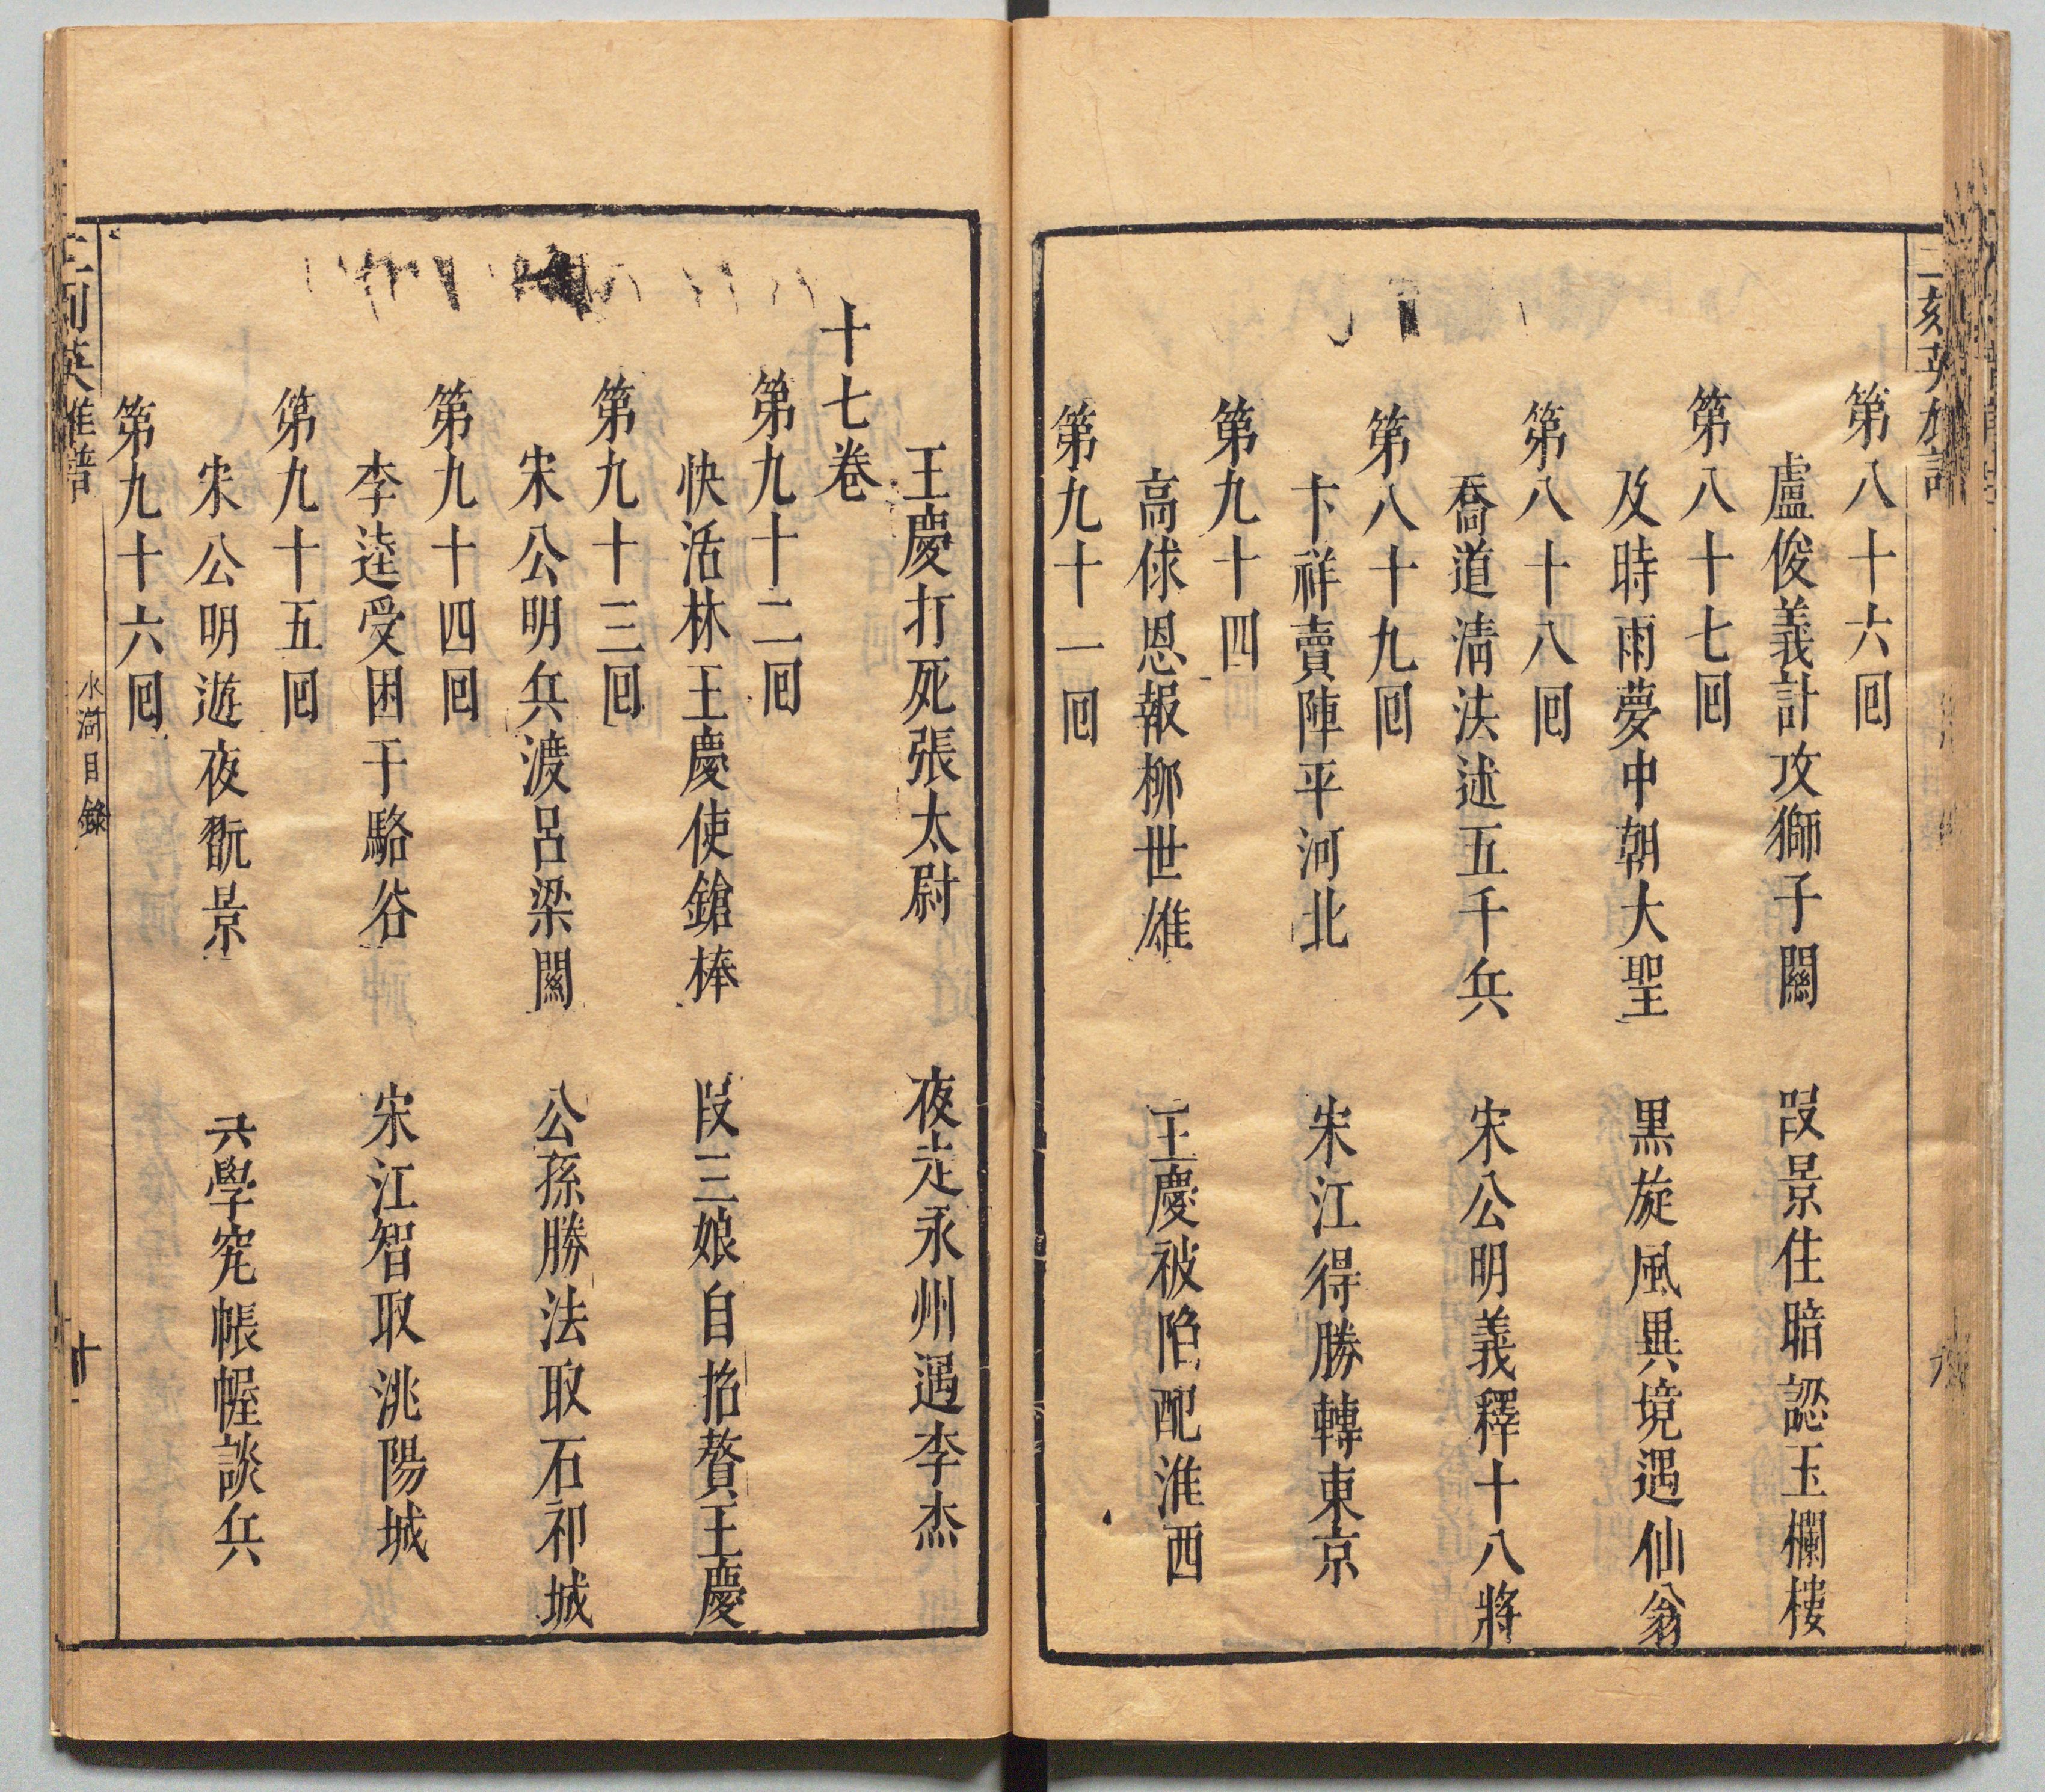 二刻英雄譜
第八十六囬
盧俊義計攻獅子關　段景住暗認玉欄樓
第八十七囬
及時雨夢中朝大聖　黒旋風異境遇仙翁
第八十八囬
喬道清法述五千兵　宋公明義釋十八將
第八十九囬
卞祥賣陣平河北　宋江得勝轉東京
第九十四
高俅恩報柳世雄　王慶被陷配淮西
第九十一囬
王慶打死張太尉　夜走永州遇李杰
十七卷
第九十二囬
快活林王慶使鎗棒　段三娘自招贅王慶
第九十三囬
宋公明兵渡呂梁關　公孫勝法取石祁城
第九十四囬
李逵受困于駱谷　宋江智取洮陽城
第九十五囬
宋公明遊夜翫景　吴學究帳幄談兵
第九十六囬
二刻英雄譜
水滸目錄
十